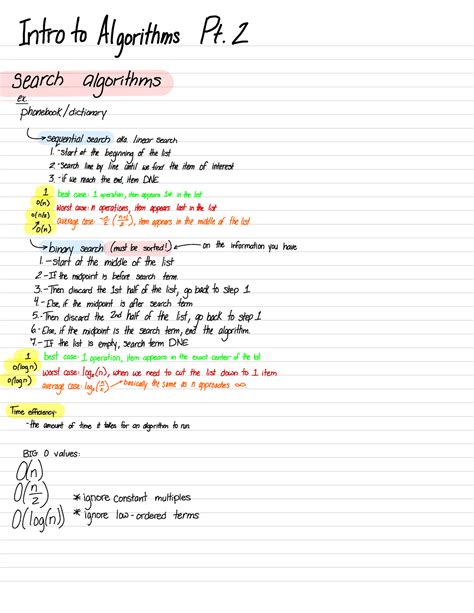 Intro to Algorithms Pt. 2
Search algorithms
ex.
phonebook/dictionary
sequential search aka. linear search
1. - start at the beginning of the list
2. - search line by line until we find the item of interest
3. - if we reach the end, item DNE
1 best case: 1 operation, item appears 1st in the list
O(n) worst case: n operations, item appears last in the list
average case: item appears in the middle of the list
O(n)
binary search (must be sorted!) on the information you have
1. - start at the middle of the list
2. - If the midpoint is before search term.
3. - Then discard the 1st half of the list, go back to step 1
4. - Else, if the midpoint is after search term
5. - Then discard the 2nd half of the list, go back to step 1
6. - Else, if the midpoint is the search term, end the algorithm.
7. - If the list is empty, search term DNE
1 best case: 1 operation, item appears in the exact center of the list
O(log n) worst case: log₂(n), when we need to cut the list down to 1 item
O(log n) average case: log₂ basically the same as n approaches ∞
Time efficiency
- the amount of time it takes for an algorithm to run.
BIG O values:
O(n)
O(n/2) * ignore constant multiples
O(log(n)) * ignore low-ordered terms